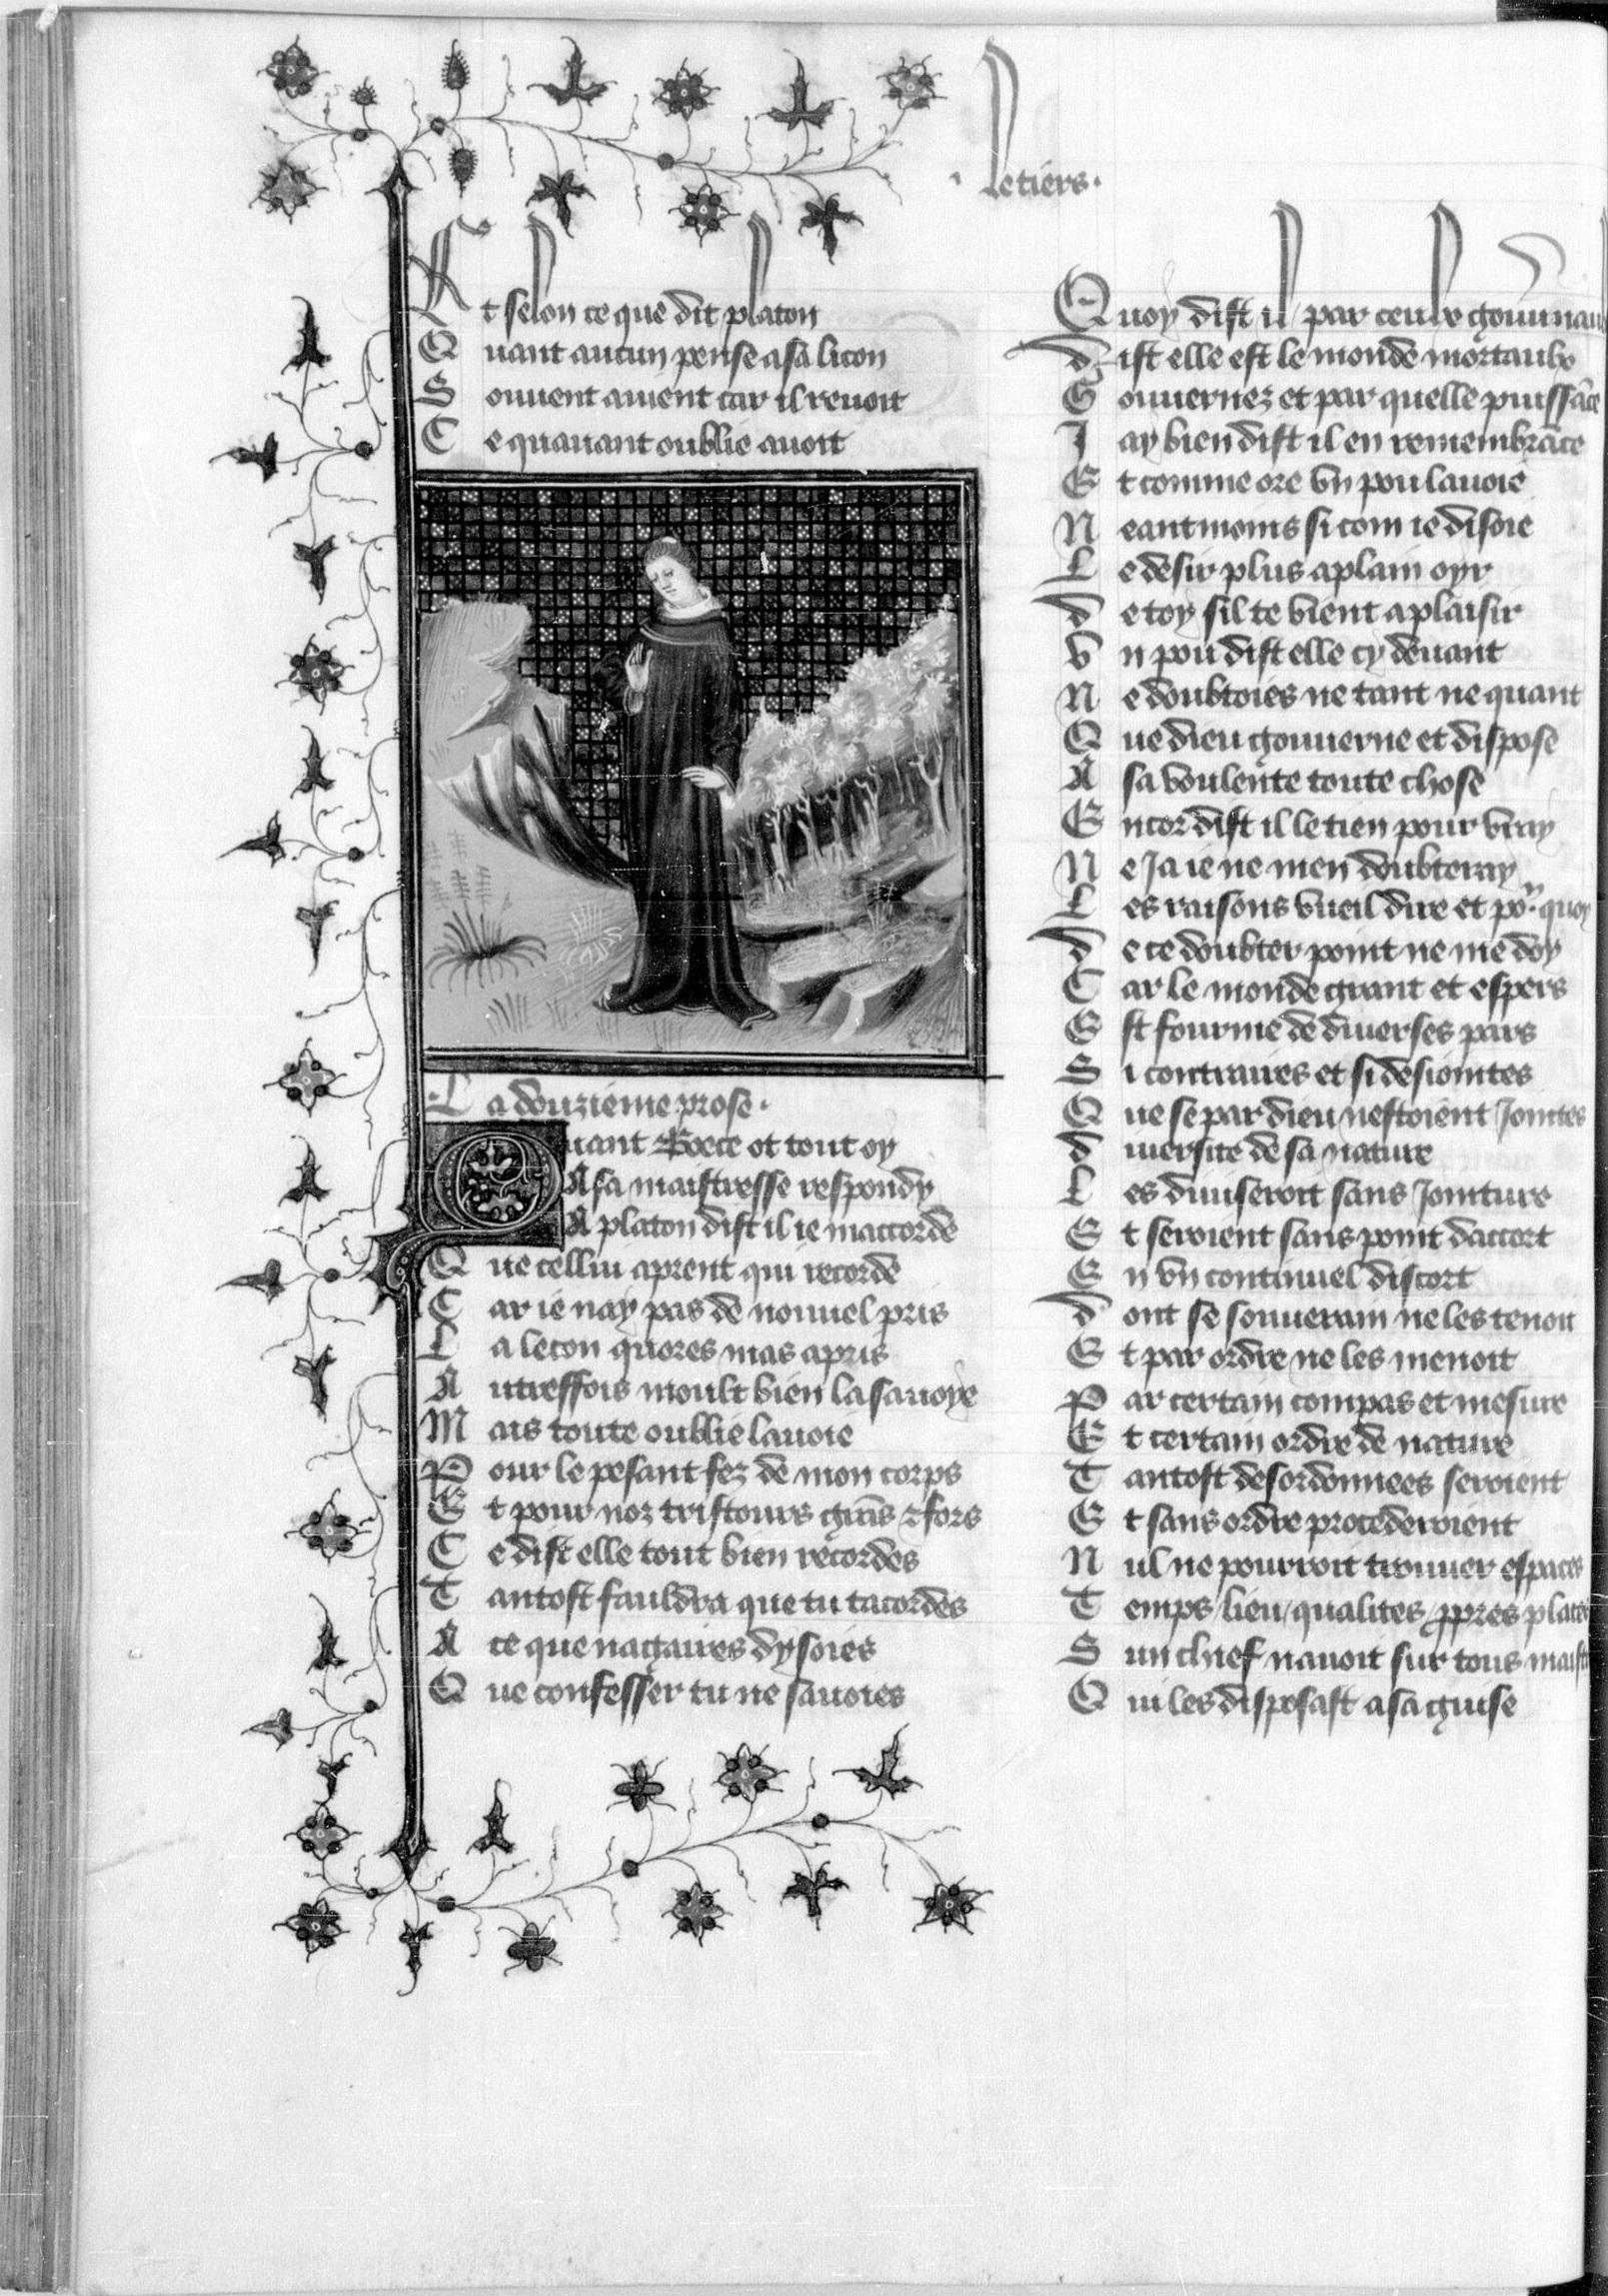 . Le tiers .
Et selon ce que dit platon
Quant aucun pense a sa licon
Souuent auient car il reuoit
Ce quauant oublie auoit
La douzieme prose .
Quant Boece ot tout oy
A sa maistresse respondy
A platon dist il ie maccorde
Que cellui aprent qui recorde
Car ie nay pas de nouuel pris
La lecon quores mas apris
Autreffois moult bien la sauoye
Mais toute oublie lauoie
Pour le pesant fez de mon corps
Et pour noz tristours grãs ⁊ fors
Ce dist elle tout bien recordes
Tantost fauldra que tu tacordes
A ce que nagaires dysoies
Que confesser tu ne sauoies
Quoy dist il / par ceulx
Dist elle est le monde mortaulx
Gouuernez et par quelle puissãce
Jay bien dist il en remembrãce
Et comme ore vn pou lauoie
Neantmoins si com ie disoie
Le desir plus a plain oyr
De toy sil te vient a plaisir
Vn pou dist elle cy deuant
Ne doubtoies ne tant ne quant
Que dieu gouuerne et dispose
A sa voulente toute chose
Encor dist il le tien pour vray
Ne Ja ie ne men doubteray
Les raisons vueil dire et po.r quoy
De ce doubter point ne me doy
Car le monde grant et espers
Est fourme de diuerses pars
Si contraires et si desiointes
Que se par dieu nestoient Jointes
Diuersite de sa nature
Les diuiseroit sans Jointure
Et seroient sans point daccort
En vn continuel discort
Dont se souuerain ne les tenoit
Et par ordre ne les menoit
Par certain compas et mesure
Et certain ordre de nature
Tantost desordonnees seroient
Et sans ordre procederoient
Nul ne pourroit trouuer espaces
Temps / lieu / qualites / ꝓpres places
Sun chief nauoit sur tous
Qui les disposast a sa guise